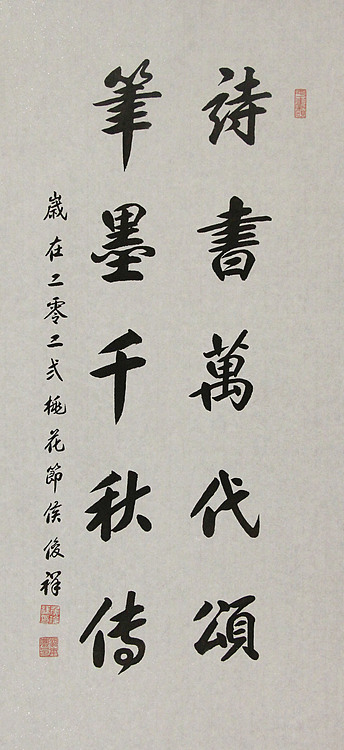 詩書萬代頌
筆墨千秋传
歲在二零二弍桃花節侯俊祥